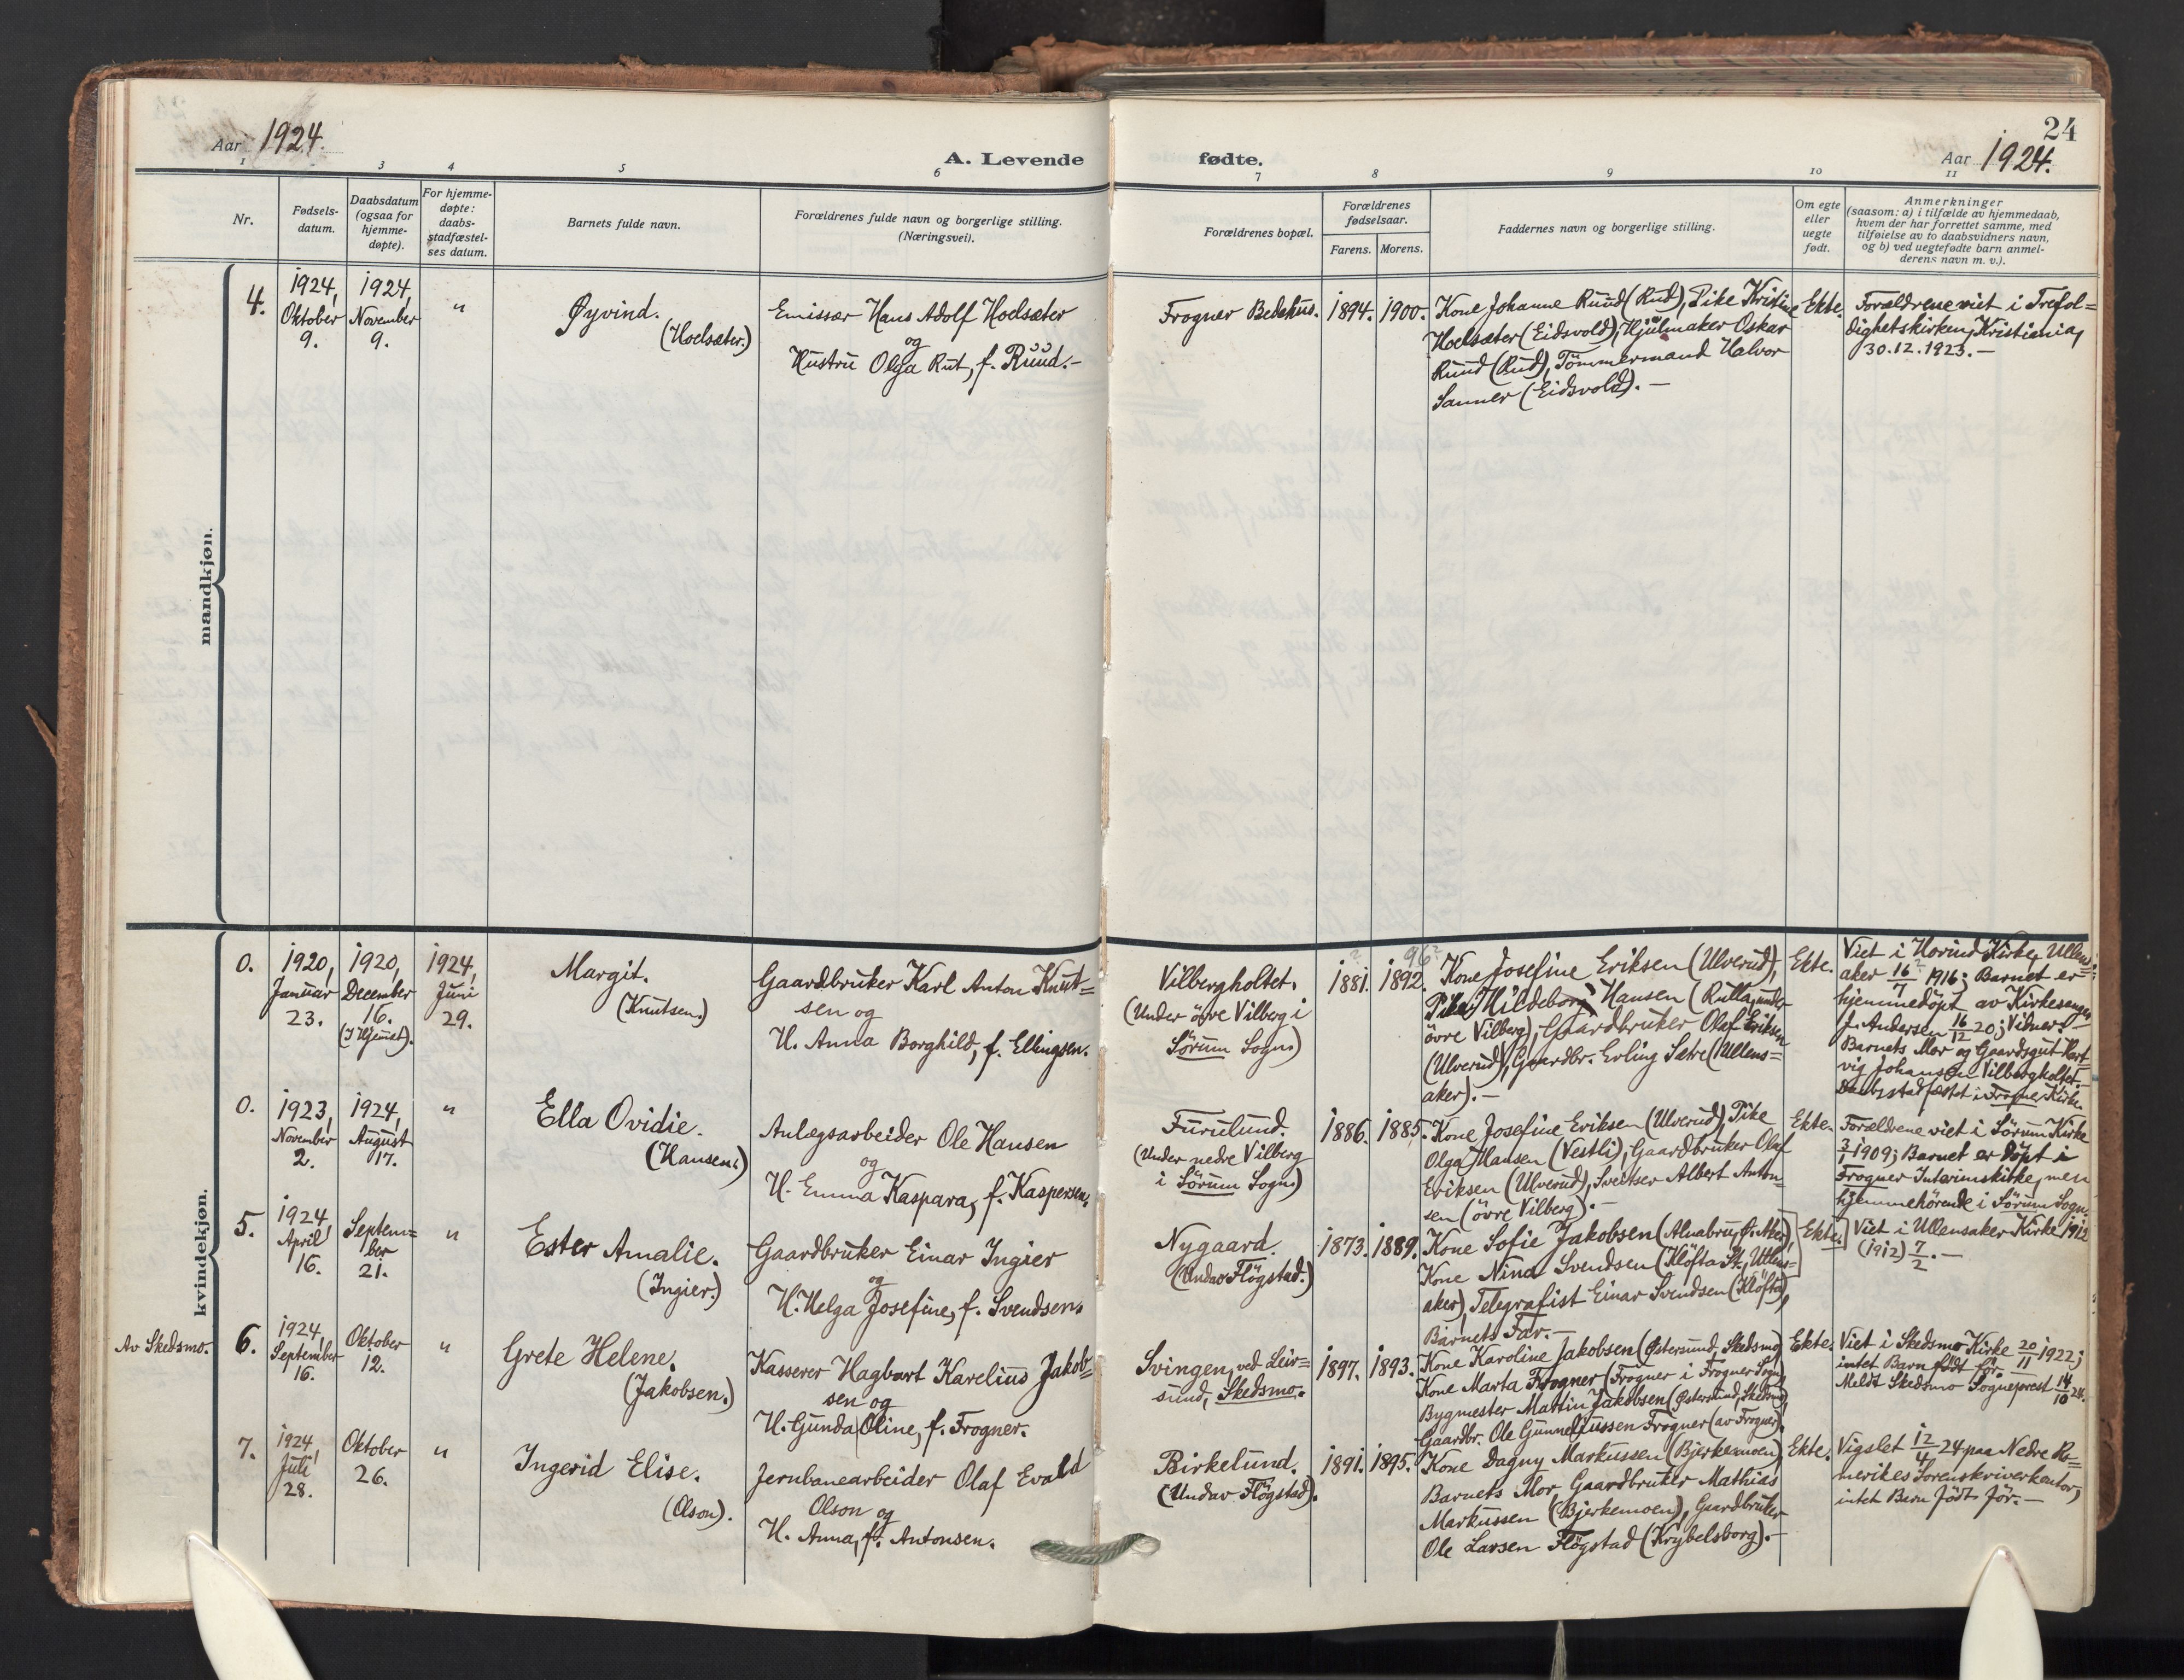 Aar 1924.
A. Levende fødte.
24
Aar 1924.
1 3 4 5 6 7 8 9 10 11
Nr.
Fødsels-
datum.
Daabsdatum
(ogsaa for
hjemme-
døpte).
For hjemme-
døpte:
daabs-
stadfæstel-
ses datum.
Barnets fulde navn.
Forældrenes fulde navn og borgerlige stilling.
(Næringsvei).
Forældrenes bopæl.
Forældrenes
fødselsaar.
Farens. Morens.
Faddernes navn og borgerlige stilling.
Om egte
eller
uegte
født.
Anmerkninger
(saasom: a) i tilfælde av hjemmedaab,
hvem der har forrettet samme, med
tilføielse av to daabsvidners navn,
og b) ved uegtefødte barn anmel-
derens navn m. v.).
mandkjøn.
4.
1924,
Oktober
9.
1924,
November
9.
"
Øyvind.
(Hoelsæter.)
Emissær Hans Adolf Hoelsæter
og
Hustru Olga Rut, f. Ruud.-
Frogner Bedehus.
1894. 1900.
Kone Johanne Ruud (Rud), Pike Kristine
Hoelsæter (Eidsvold), Hjulmaker Oskar
Ruud (Rud), Tömmermand Halvor
Sanner (Eidsvold). -
Ekte.
Forældrene viet i Trefol=
dighetskirken, Kristiania,
30.12.1923. -
kvindekjøn.
0.
1920,
Januar
23.
1920,
December
16.
(I Hjemmet).
1924,
Juni
29.
Margit.
(Knutsen.)
Gaardbruker Karl Anton Knut=
sen og
H. Anna Borghild, f. Ellingsen.
Vilbergholtet.
(Under övre Vilberg i
Sörum Sogn.)
?
1881.
96?
1892.
Kone Josefine Eriksen (Ulverud),
Pike Hildeborg Hansen (Rulla, under
övre Vilberg), Gaardbruker Olaf Eriksen
(Ulverud), Gaardbr. Erling Sætre (Ullens=
aker). -
Ekte.
Viet i Hovind Kirke, Ullens=
aker 16/7 1916; Barnet er
hjemmedöpt av Kirkesanger
J. Andersen 16/12 20; Vidner:
Barnets Mor og Gaardsgut Hart=
vig Johansen Vilbergholtet.
Daabs stadfæstet i Frogner Kirke.
0.
1923,
November
2.
1924,
August
17.
"
Ella Ovidie.
(Hansen.)
Anlægsarbeider Ole Hansen
og
H. Emma Kaspara, f. Kaspersen.
Furulund.
(Under nedre Vilberg
i Sörum Sogn.)
1886. 1885.
Kone Josefine Eriksen (Ulverud), Pike
Olga Hansen (Vestli), Gaardbruker Olaf
Eriksen (Ulverud), Sveitser Albert Anton=
sen (övre Vilberg). -
Ekte.
Forældrene viet i Sörum Kirke
3/1 1909; Barnet er döpt i
Frogner Interimskirke, men
hjemmehörende i Sörum Sogn.
5.
1924,
April
16.
Septem=
ber
21.
"
Ester Amalie.
(Ingier.)
Gaardbruker Einar Ingier
og
H. Helga Josefine, f. Svendsen.
Nygaard.
(Undav Flögstad.)
1873. 1889.
Kone Sofie Jakobsen (Alnabru, Ö. Aker),
Kone Nina Svendsen (Klöfta St., Ullens=
aker), Telegrafist Einar Svendsen (Klöfta),
Barnets Far. -
Ekte.
Viet i Ullensaker Kirke 1912
(1912) 7/2. -
Av Skedsmo.
6.
1924,
September
16.
Oktober
12.
"
Grete Helene.
(Jakobsen.)
Kasserer Hagbart Karelius Jakob=
sen og
H. Gunda Oline, f. Frogner.
Svingen, ved Leir=
sund, Skedsmo.
1897. 1893.
Kone Karoline Jakobsen (Østersund, Skedsmo)
Kone Marta Frogner (Frogner i Frogner Sogn)
Bygmester Martin Jakobsen (Østersund, Skedsmo),
Gaardbr. Ole Gunneljussen Frogner (av Frogner).
Ekte.
Viet i Skedsmo Kirke 20/11 1922;
intet Barn födt för.
Meldt Skedsmo Sogneprest 14/10 24.
7.
1924,
Juli
28.
Oktober
26.
"
Ingerid Elise.
(Olson).
Jernbanearbeider Olaf Evald
Olson og
H. Anna, f. Antonsen.
Birkelund.
(Undav Flögstad).
1891. 1895.
Kone Dagny Markussen (Bjerkemoen)
Barnets Mor, Gaardbruker Mathias
Markussen (Bjerkemoen), Gaardbruker
Ole Larsen Flögstad (Krybelsborg). -
Ekte.
Vigslet 12/4 24 paa Nedre Ro=
merikes Sorenskriverkontor,
intet Barn födt för. -